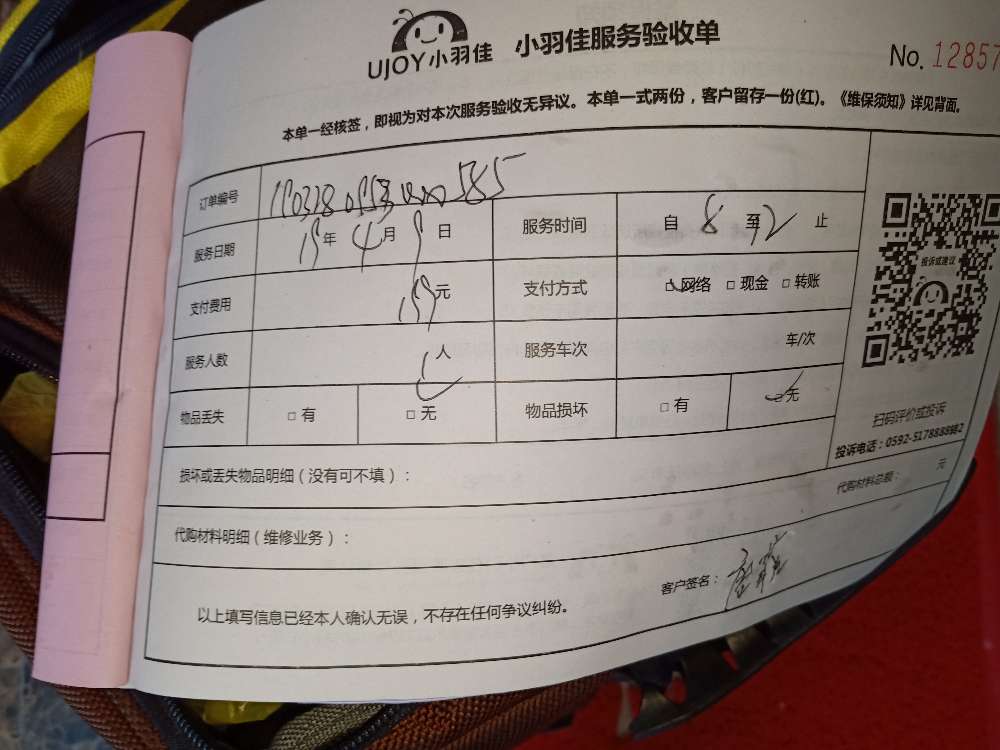 UJOY小羽佳 小羽佳服务验收单
No. 12857
本单一经核签，即视为对本次服务验收无异议。本单一式两份，客户留存一份(红)。《维保须知》详见背面。
订单编号
服务日期 19年 4月 9日 服务时间 自 8 至 12 止
支付费用 元 支付方式 □网络 □现金 □转账
服务人数 1人 服务车次 车/次
物品丢失 □有 □无 物品损坏 □有 □无
投诉或建议
扫码评价或投诉
投诉电话：0592-5178888982
损坏或丢失物品明细（没有可不填）：
代购材料明细（维修业务）： 代购材料总额： 元
以上填写信息已经本人确认无误，不存在任何争议纠纷。 客户签名：